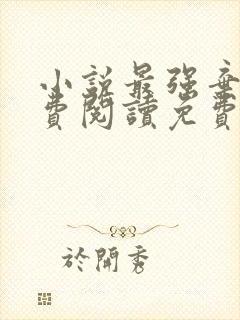 小說最強棄
費閱讀免費
於開秀